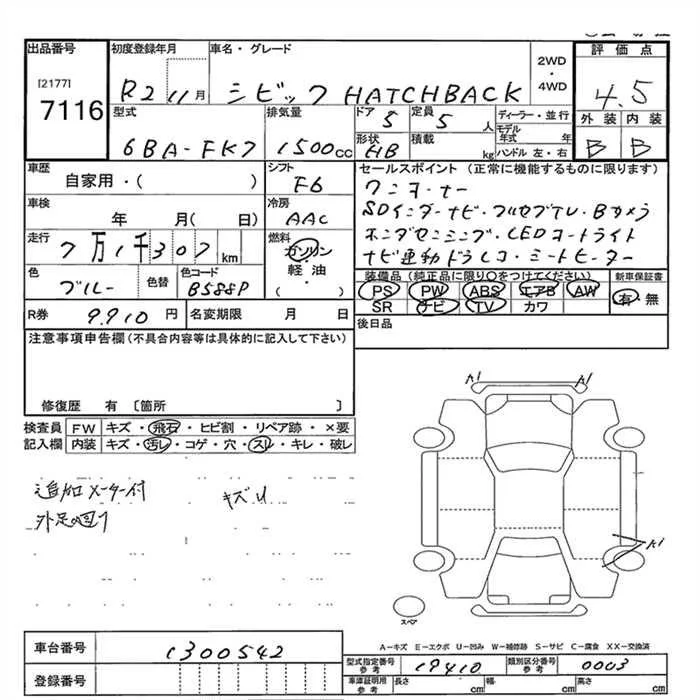 出品番号 初度登録年月 車名・グレード 2WD・4WD 評価点
[2177]
7116
R2 11月 シビック HATCHBACK 4.5
型式 排気量 ドア 定員 ディーラー・並行 外装 内装
6BA-FK7 1500cc 5 5人 モデル年式 年 B B
形状 積載 ハンドル 左・右
HB kg
車歴 シフト セールスポイント (正常に機能するものに限ります)
自家用・( ) F6 ワンオーナー
車検 冷房 SDインターナビ・フルセグTV・Bカメラ
年 月( 日) AAC
走行 燃料 ホンダセンシング・LEDコートライト
7万1千307km ガソリン・軽・油・( ) ナビ連動ドラレコ・シートヒーター
色 色替 色コード 装備品 (純正品に限り○をつけてください) 新車保証書
ブルー B588P PS PW ABS エアB AW 有・無
SR ナビ TV カワ
R券 9.910円 名変期限 月 日 後日品
注意事項申告欄 (不具合内容等は具体的に記入して下さい)
修復歴 有 〔箇所 〕
検査員 FW キズ・飛石・ヒビ割・リペア跡・×要
記入欄 内装 キズ・汚レ・コゲ・穴・スレ・キレ・破レ
A1 A1
追加メーター付 キズU
A1
スペア
A-キズ E-エクボ U-凹み W-補修跡 S-サビ C-腐食 XX-交換済
車台番号 1300542
型式指定番号 参考 19410 類別区分番号 参考 0003
登録番号
車庫証明用 参考 長さ cm 幅 cm 高さ cm